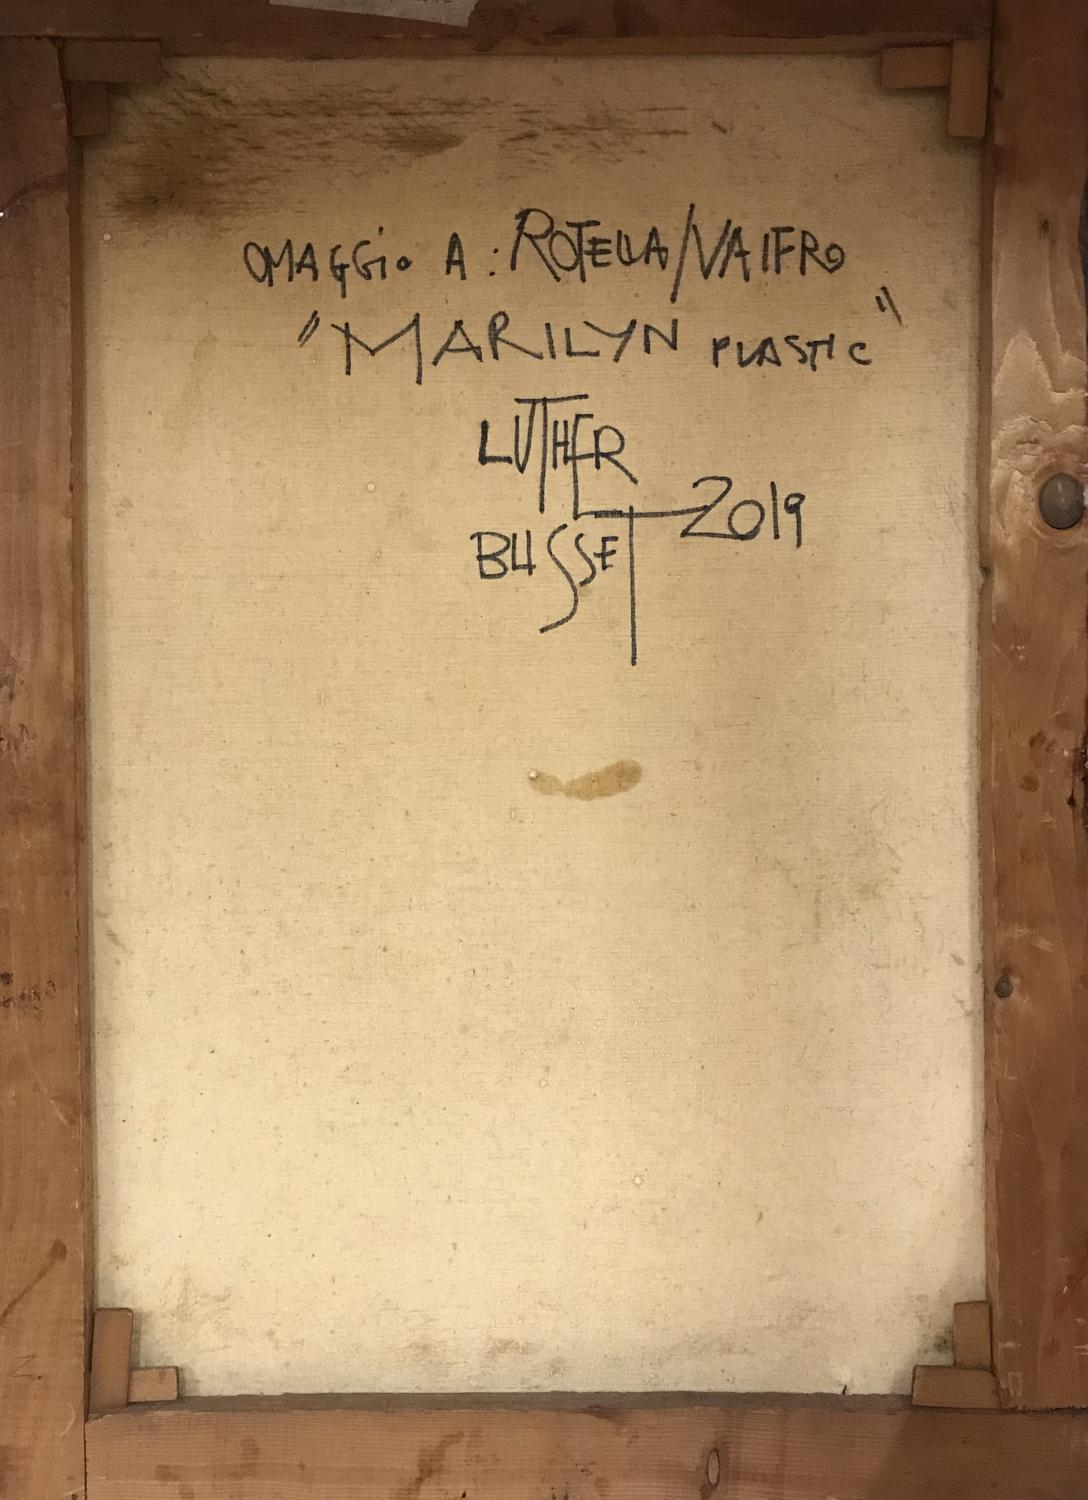 OMAGGiO A: ROTELLA/VAIFRO
"MARILYN PLASTIC"
LUTHER
BLISSET 2019